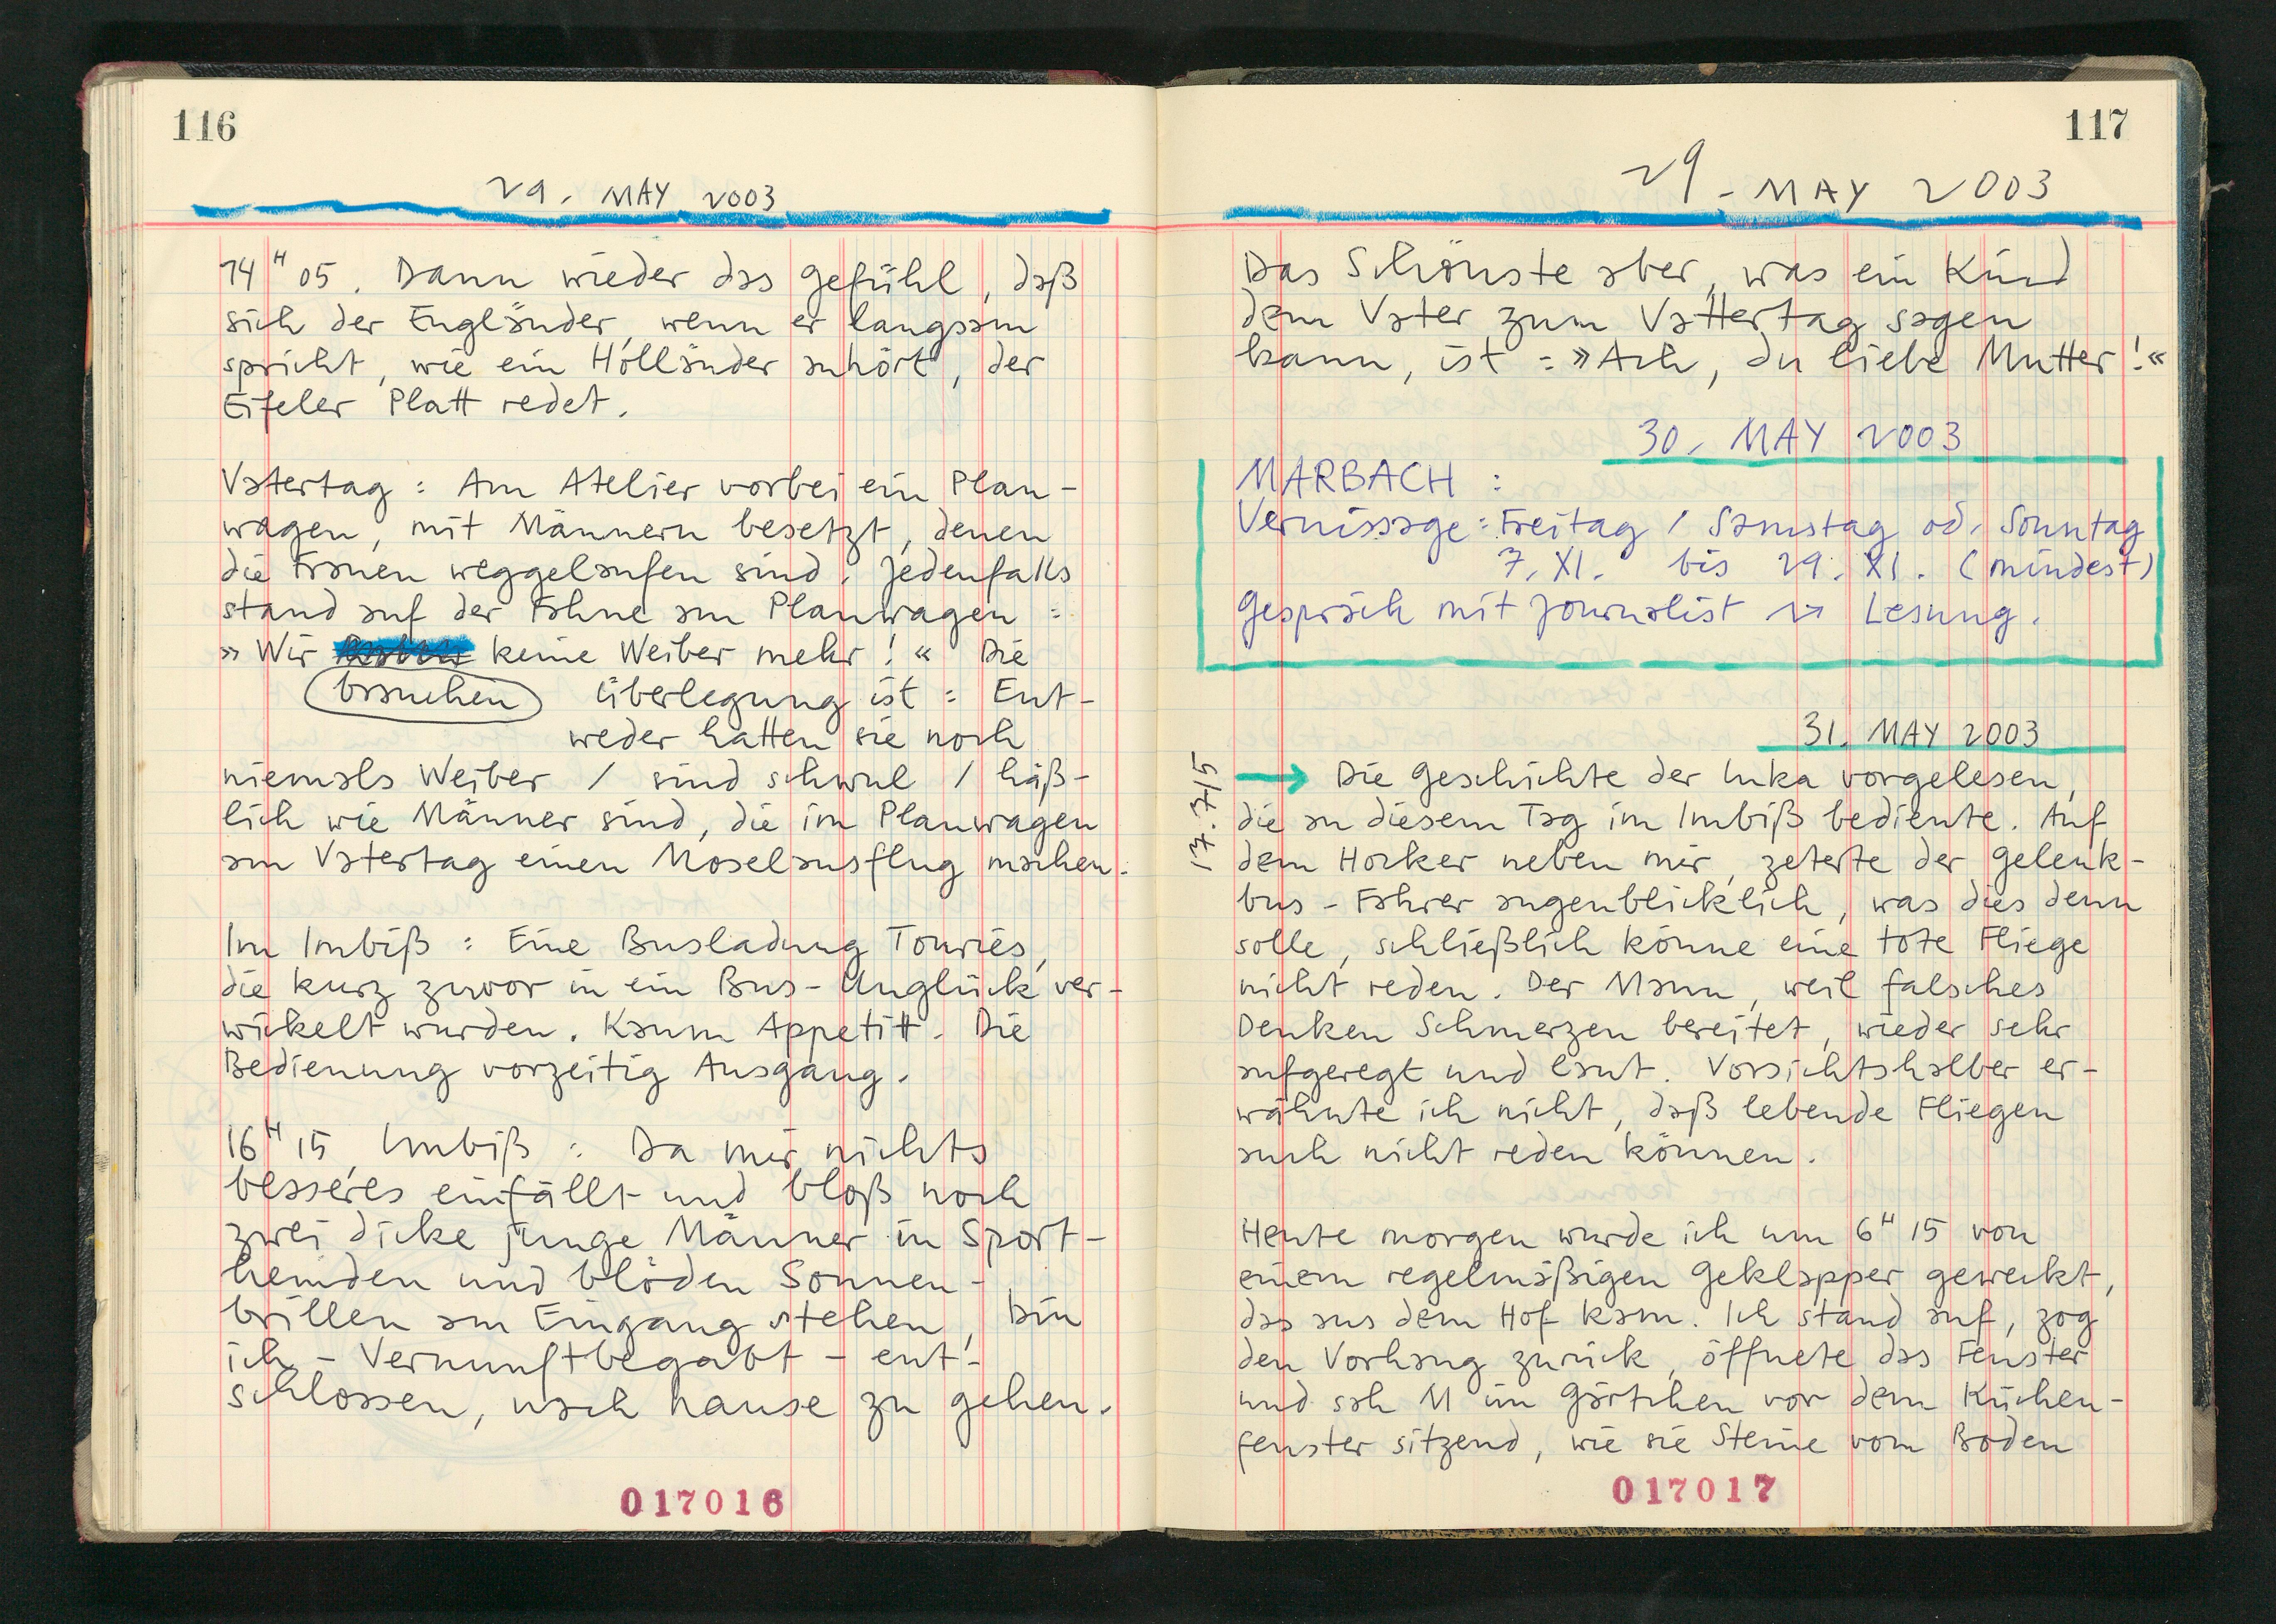 116
29. MAY 2003
14 H 05. Dann wieder das Gefühl, daß
sich der Engländer, wenn er langsam
spricht, wie ein Holländer anhört, der
Eifeler Platt redet.
Vatertag: Am Atelier vorbei ein Plan-
wagen, mit Männern besetzt, denen
die Frauen weggelaufen sind. Jedenfalls
stand auf der Fahne am Planwagen:
»Wir keine Weiber mehr!« Die
brauchen Überlegung ist: Ent-
weder hatten sie noch
niemals Weiber / sind schwul / häß-
lich wie Männer sind, die im Planwagen
am Vatertag einen Moselausflug machen.
Im Imbiß: Eine Busladung Touries,
die kurz zuvor in ein Bus-Unglück ver-
wickelt wurden. Kaum Appetitt. Die
Bedienung vorzeitig Ausgang.
16 H 15, Imbiß: Da mir nichts
besseres einfällt und bloß noch
zwei dicke junge Männer in Sport-
hemden und blöden Sonnen-
brillen am Eingang stehen, bin
ich - Vernunftbegabt - ent-
schlossen, nach hause zu gehen.
017016
117
29. MAY 2003
Das Schönste aber, was ein Kind
dem Vater zum Vattertag sagen
kann, ist: »Ach, du liebe Mutter!«
30. MAY 2003
MARBACH:
Vernissage: Freitag / Samstag od. Sonntag
7. XI. bis 29. XI. (mindest)
Gespräch mit Journalist → Lesung.
31. MAY 2003
17.7/5
→ Die Geschichte der Inka vorgelesen,
die an diesem Tag im Imbiß bediente. Auf
dem Hocker neben mir, zeterte der Gelenk-
bus-Fahrer augenblicklich, was dies denn
solle, schließlich könne eine tote Fliege
nicht reden. Der Mann, weil falsches
Denken Schmerzen bereitet, wieder sehr
aufgeregt und laut. Vorsichtshalber er-
wähnte ich nicht, daß lebende Fliegen
auch nicht reden können.
Heute morgen wurde ich um 6 H 15 von
einem regelmäßigen Geklapper geweckt,
das aus dem Hof kam. Ich stand auf, zog
den Vorhang zurück, öffnete das Fenster
und sah M im Gärtchen vor dem Küchen-
fenster sitzend, wie sie Steine vom Boden
017017